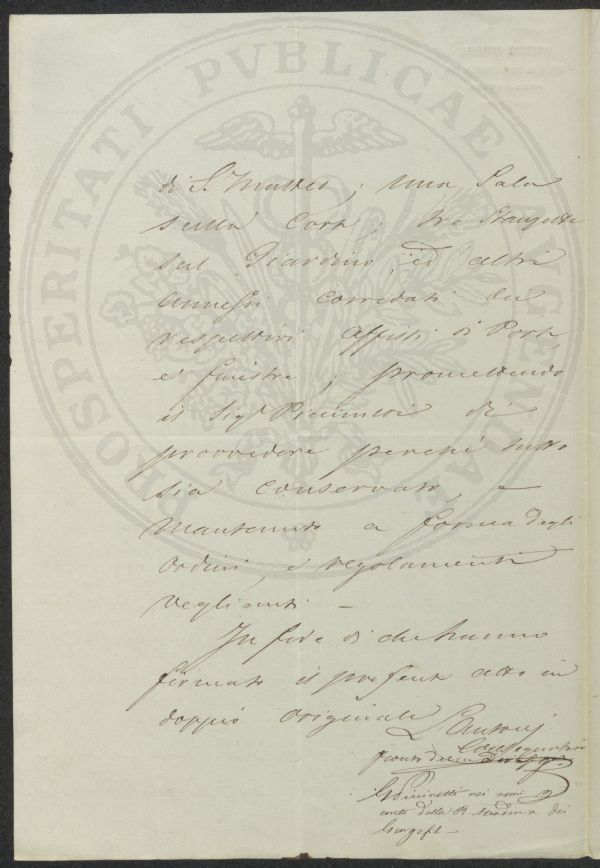 PROSPERITATI PVBLICAE AVGENDAE
di S. Matteo; una Sala
sulla Corte; tre Stanzette
sul Giardino, ed altri
annessi corredati dei
respettivi affissi di Porte,
e finestre; promettendo
il Sigr
provvedere perché tutto
sia conservato, e
mantenuto a forma degli
ordini, e regolamenti
veglianti –
In fede di che hanno
firmato il presente atto in
doppio originale
nei nomi
della R. Accademia dei